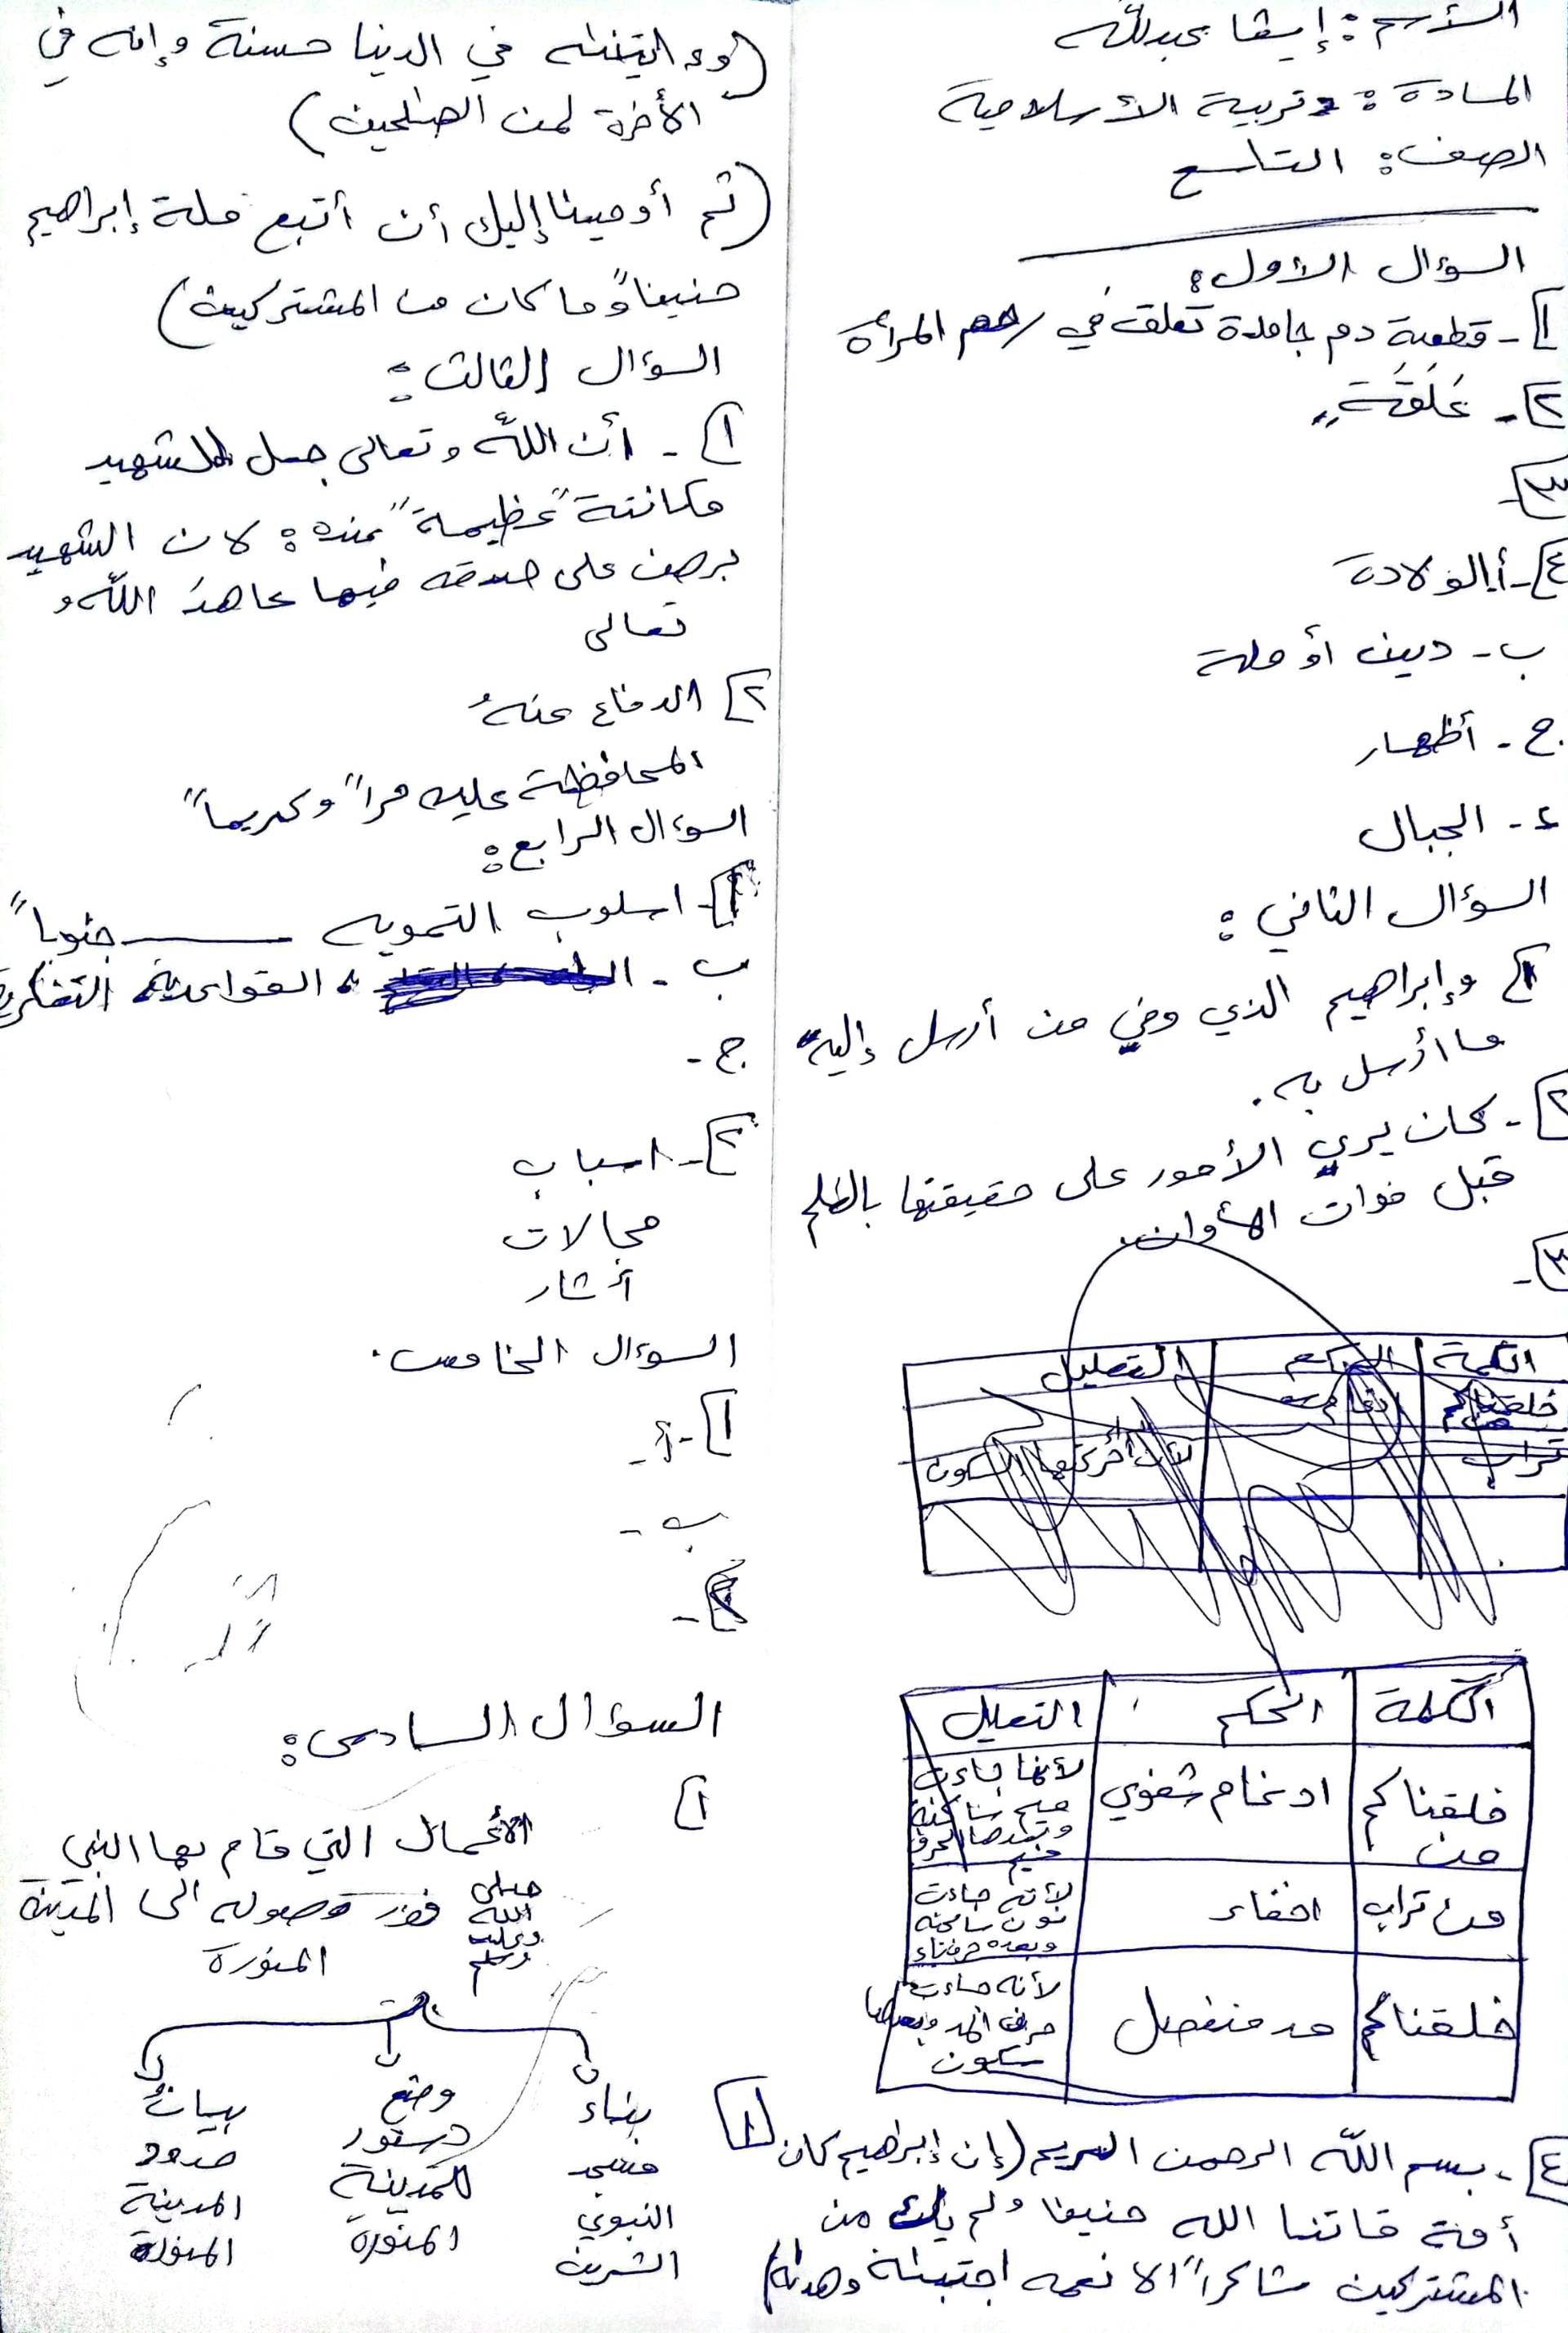 الأسم : إيفا عبدالله
المادة : تربية الأسلامية
الصف : التاسع
السؤال الأول :
١- قطعة دم جامدة تعلق في رحم المرأة
٢- عَلَقَة
٣-
٤- أ. الولادة
ب - دين أو ملة
ج - أظهار
د - الجبال
السؤال الثاني :
١ وإبراهيم الذي وفي من أرسل إليه
ما أرسل به .
٢- كان يري الأمور على حقيقتها بالظلم
قبل فوات الأوان
٣-
الكلمة الحكم التعليل
خلقناكم من ادغام شفوي لأنها جاءت ميم ساكنة وبعدها حرف ميم
من تراب اخفاء لأنه جاءت نون ساكنه وبعده حرف تاء
خلقناكم مد منفصل لأنه جاءت حرف المد وبعدها سكون
٤- بسم الله الرحمن الرحيم (إن إبراهيم كان
أمة قاتنا الله حنيفا ولم يك من
المشتركين شاكراً الا نعمه اجتبىٰه وهدىٰه)
(وءاتينٰه في الدينا حسنة وإنه في
الأخرة لمن الصٰلحين)
(ثم أوحينا إليك أن أتبع ملة إبراهيم
حنيفاً وما كان من المشتركين)
السؤال الثالث :
١- أن الله وتعالى جعل للشهيد
مكانتة عظيمة عنده : لان الشهيد
برهن على صدقه فيما عاهد الله و
تعالى
٢ الدفاع عنهُ
المحافظة عليه حراً وكريماً
السؤال الرابع :
١- اسلوب التمويه ــــــ جنوباً
ب - القواعدية التفكرية
ج -
٢- اسباب
مجالات
أثار
السؤال الخامس .
١- أ -
ب -
٢-
السؤال السادس :
١
الأعمال التي قام بها النبي
صلى الله وعليه وسلم فور وصوله الى المدينة
المنورة
بناء مسجد النبوي الشرين
وضع دستور للمدينة المنورة
بيان حدود المدينة المنورة